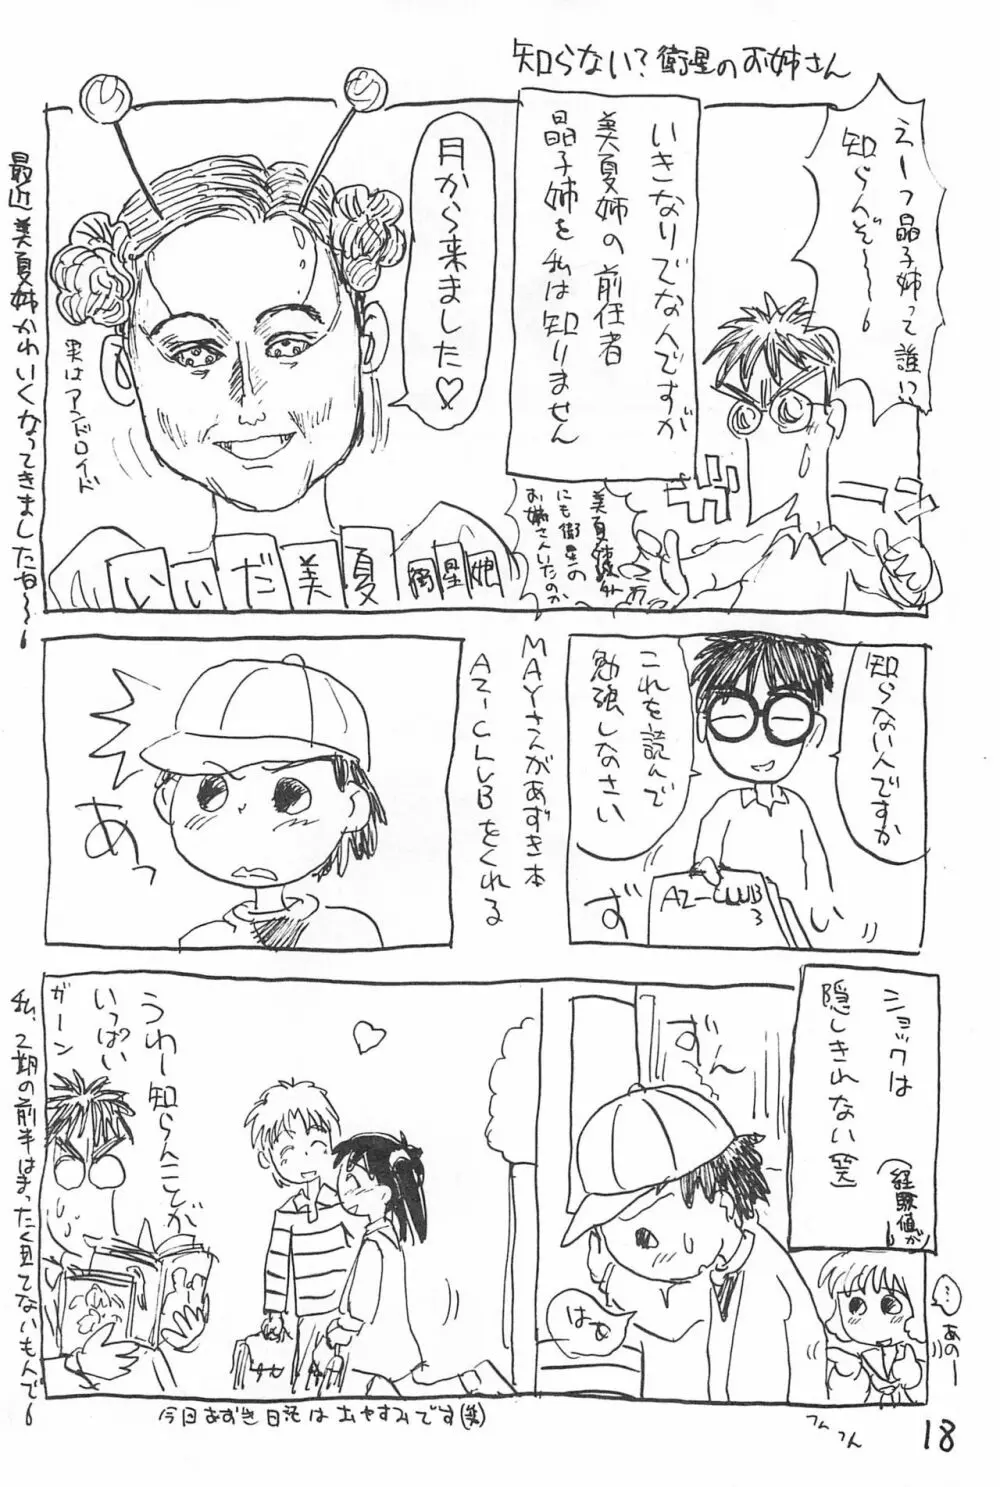 知らない？衛星のお姉さん
えーっ晶子姉って誰に
知らんぞ〜〜〜。
いきなりでなんですが
美夏姉の前任者
晶子姉を私は知りません
ガーン
美夏姉以外
にも衛星の
お姉さんいたのか
月から来ました♡
実はアンドロイド
いいだ美夏
衛星娘
最近美夏姉かわいくなってきましたね〜〜。
知らないんですか
これを読んで
勉強しなさい
AZ-CLUB
3
ずい
MAYさんがあずき本
AZ-CLUBをくれる
あっ
ショックは
隠しきれない(笑)
(経験値が)
ずーん
はぁ
…
あのー
うわー知らんことが
いっぱい
ガーン
私、2期の前半はまったく見てないもんで〜。
今回あずき日記はおやすみです(笑)
つんつん
18